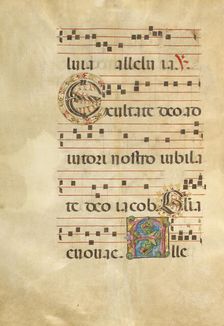 luia alleluia.
Exultate deo ad
iutori nostro iubila
te deo iacob Glia
euouae. Alle